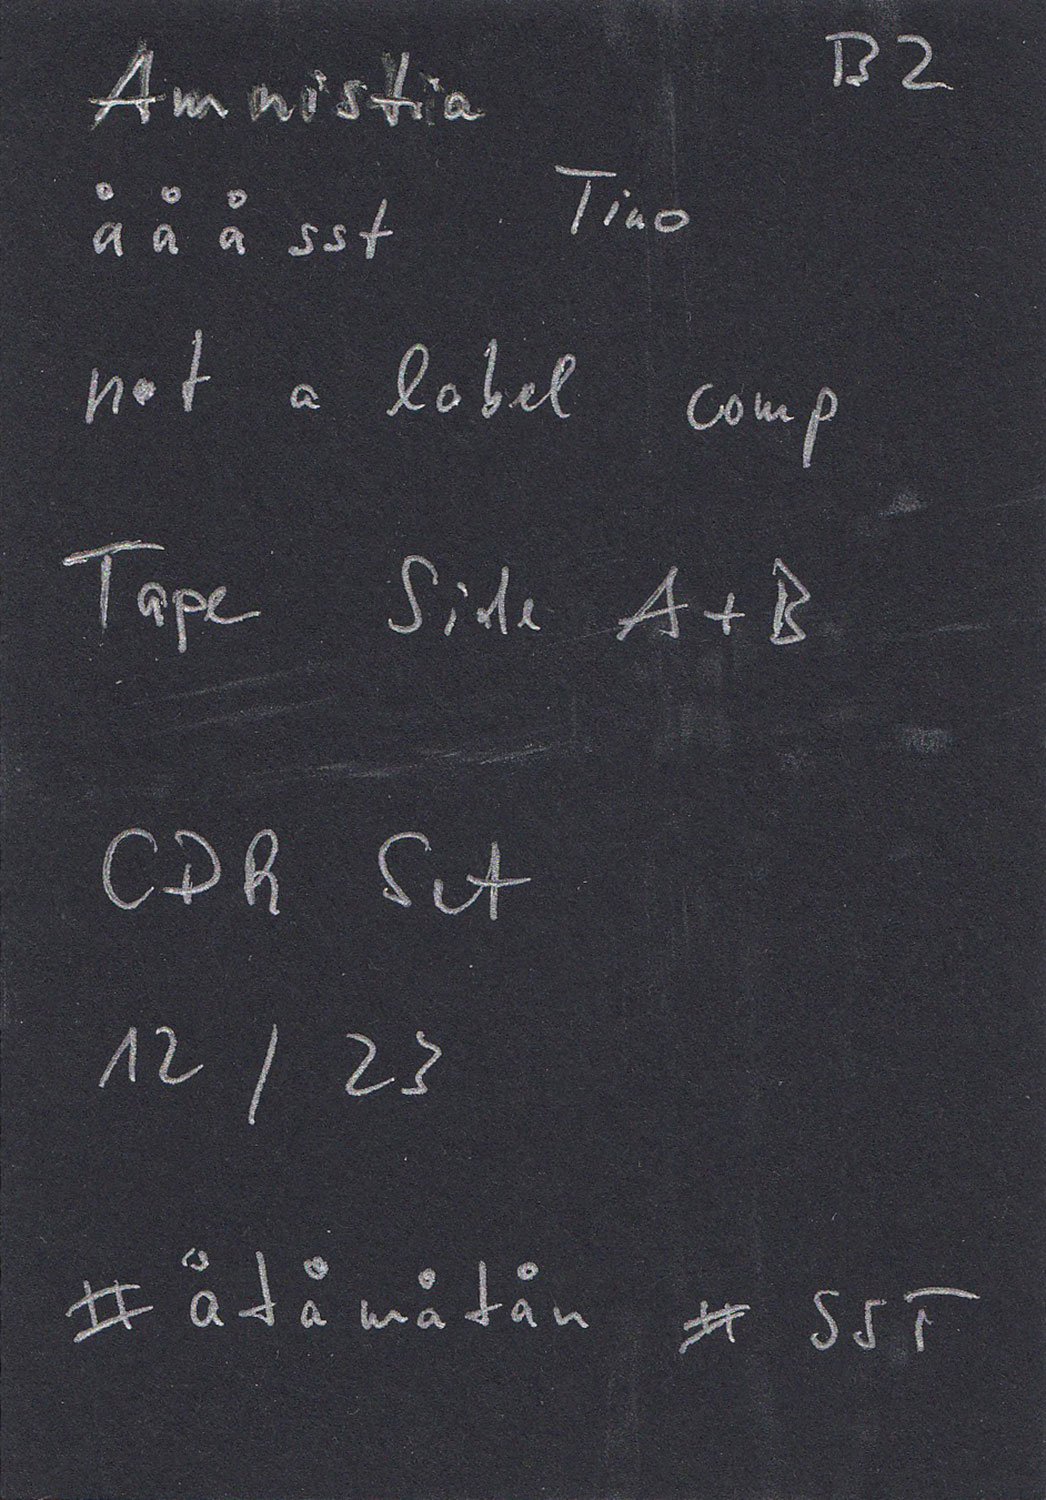 Amnistia B2
å å å sst Tino
not a label comp
Tape Side A + B
CDR Set
12 / 23
# åtåmåtån # SST